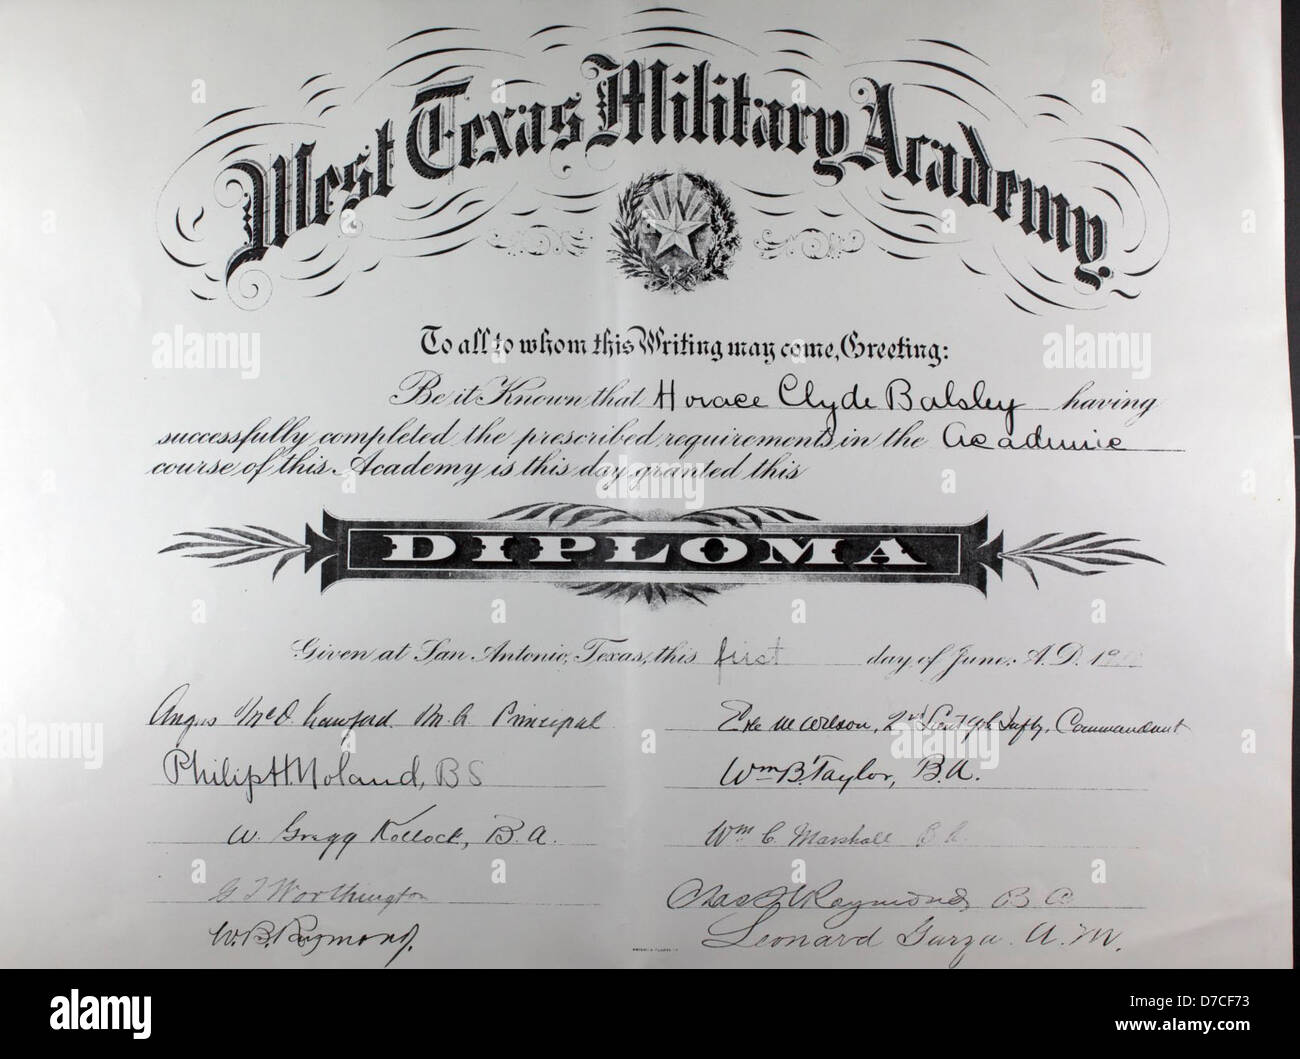 West Texas Military Academy.
To all to whom this Writing may come, Greeting:
Be it Known that Horace Clyde Balsley having
successfully completed the prescribed requirements in the Academic
course of this Academy is this day granted this
DIPLOMA
Given at San Antonio, Texas, this first day of June A.D. 19
Angus McD. Crawford M.A. Principal
Wilson, 2nd Lieut Commandant
Philip H. Noland, BS
Wm B. Taylor, B.A.
W. Gregg Kollock, B.A.
Wm C. Marshall B.A.
G T Worthington
Chas H Raymond B A
W.B. Raymond,
Leonard Garza A.M.
alamy
Image ID: D7CF73
www.alamy.com